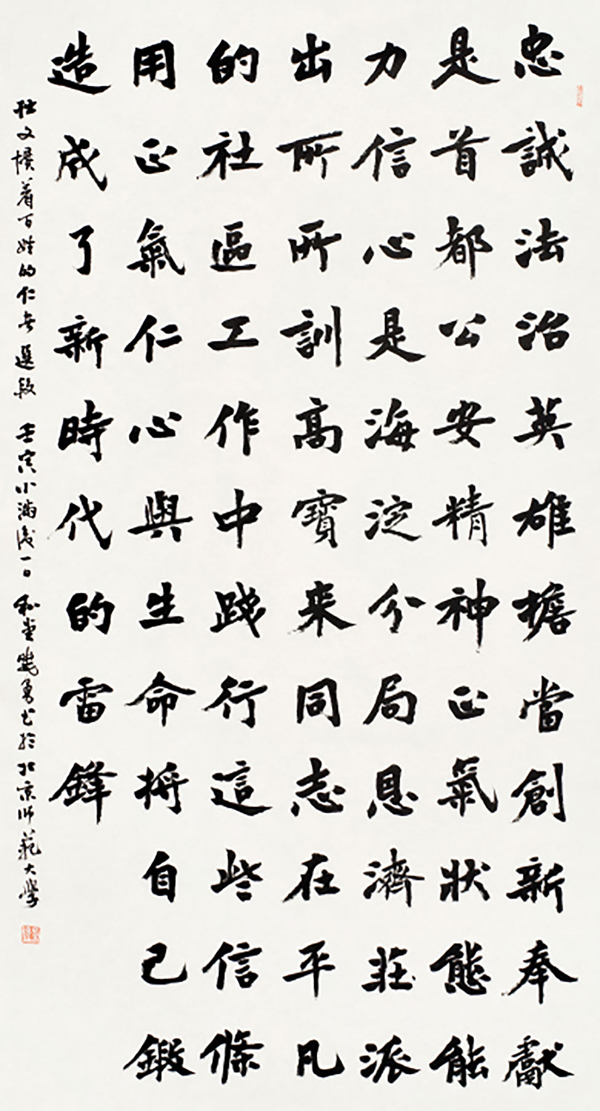 忠誠法治英雄擔當創新奉獻
是首都公安精神正氣狀態能
力信心是海淀分局恩濟莊派
出所所訓高寶来同志在平凡
的社區工作中践行這些信條
用正氣仁心與生命将自己鍛
造成了新時代的雷鋒
文着百姓的仁者選段 壬寅小滿後一日 和堂勇书於北京师範大學